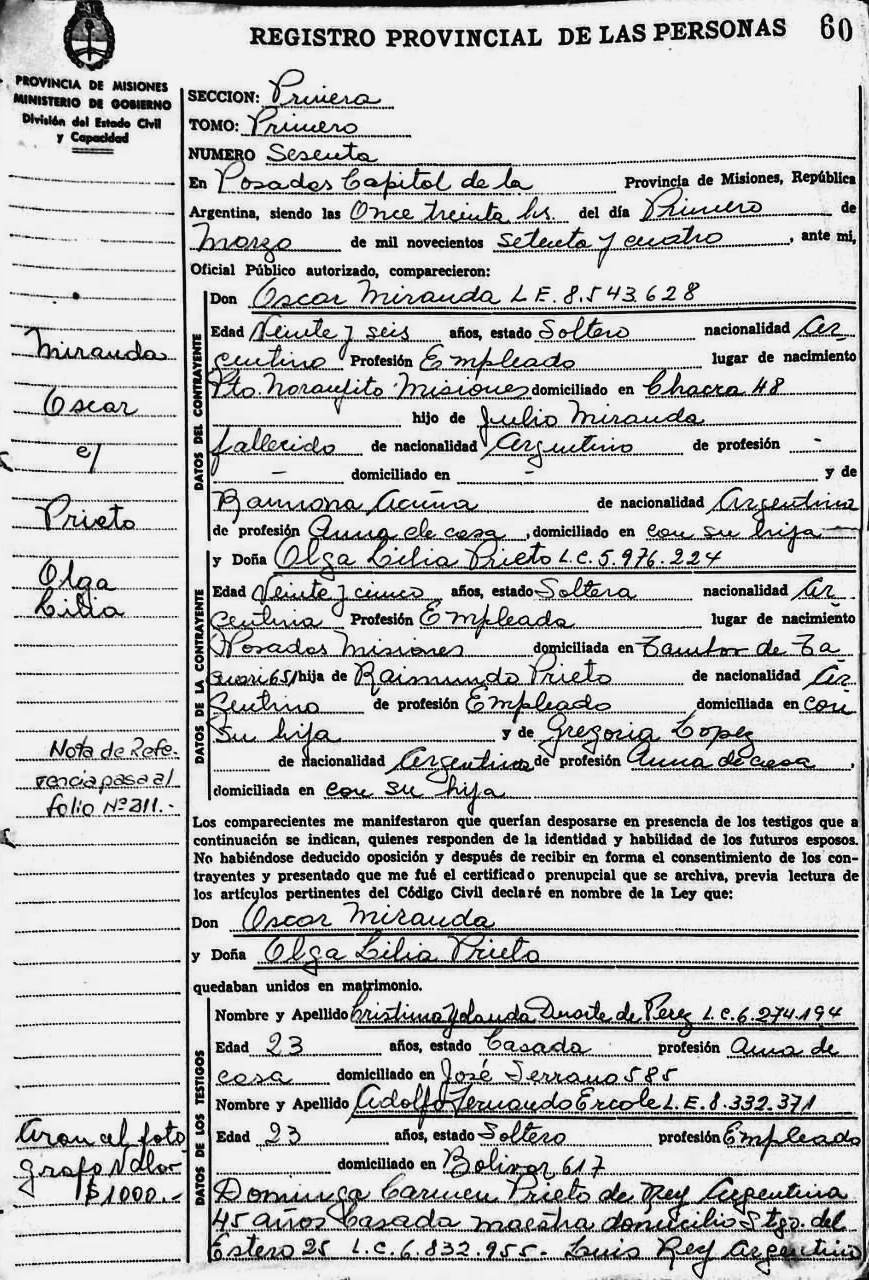 REGISTRO PROVINCIAL DE LAS PERSONAS 60
PROVINCIA DE MISIONES
MINISTERIO DE GOBIERNO
División del Estado Civil
y Capacidad
SECCION: Primera
TOMO: Primero
NUMERO Sesenta
En Posadas Capital de la Provincia de Misiones, República
Argentina, siendo las Once treinta hs. del día Primero de
Marzo de mil novecientos setenta y cuatro, ante mi,
Oficial Público autorizado, comparecieron:
DATOS DEL CONTRAYENTE
Don Oscar Miranda L.E. 8.543.628
Edad Veinte y seis años, estado Soltero nacionalidad Ar
gentino Profesión Empleado lugar de nacimiento
Pto. Naranjito Misiones domiciliado en Chacra 48
hijo de Julio Miranda
fallecido de nacionalidad Argentino de profesión -
- domiciliado en - y de
Ramona Acuña de nacionalidad Argentina
de profesión Ama de casa, domiciliado en con su hijo
DATOS DE LA CONTRAYENTE
y Doña Olga Lilia Prieto L.C. 5.976.224
Edad Veinte y cinco años, estado Soltera nacionalidad Ar
gentina Profesión Empleada lugar de nacimiento
Posadas Misiones domiciliada en Tambor de Ta
cuari 65/ hija de Raimundo Prieto de nacionalidad Ar
gentino de profesión Empleado domiciliada en con
su hija y de Gregoria Lopez
de nacionalidad Argentina de profesión Ama de casa,
domiciliada en con su hija
Los comparecientes me manifestaron que querían desposarse en presencia de los testigos que a
continuación se indican, quienes responden de la identidad y habilidad de los futuros esposos.
No habiéndose deducido oposición y después de recibir en forma el consentimiento de los con-
trayentes y presentado que me fué el certificado prenupcial que se archiva, previa lectura de
los artículos pertinentes del Código Civil declaré en nombre de la Ley que:
Don Oscar Miranda
y Doña Olga Lilia Prieto
quedaban unidos en matrimonio.
DATOS DE LOS TESTIGOS
Nombre y Apellido Cristina Yolanda Duarte de Perez L.C. 6.274.194
Edad 23 años, estado Casada profesión Ama de
casa domiciliado en José Serrano 585
Nombre y Apellido Adolfo Fernando Ercole L.E. 8.332.371
Edad 23 años, estado Soltero profesión Empleado
domiciliado en Bolivar 617
Dominga Carmen Prieto de Rey Argentina
45 años Casada maestra domicilio Stgo. del
Estero 25 L.C. 6.832.955- Luis Rey Argentino
Miranda
Oscar
c/
Prieto
Olga
Lilia
Nota de Refe-
rencia pasa al
folio Nº 211.-
Arancel foto
grafo Valor
$ 1000.-